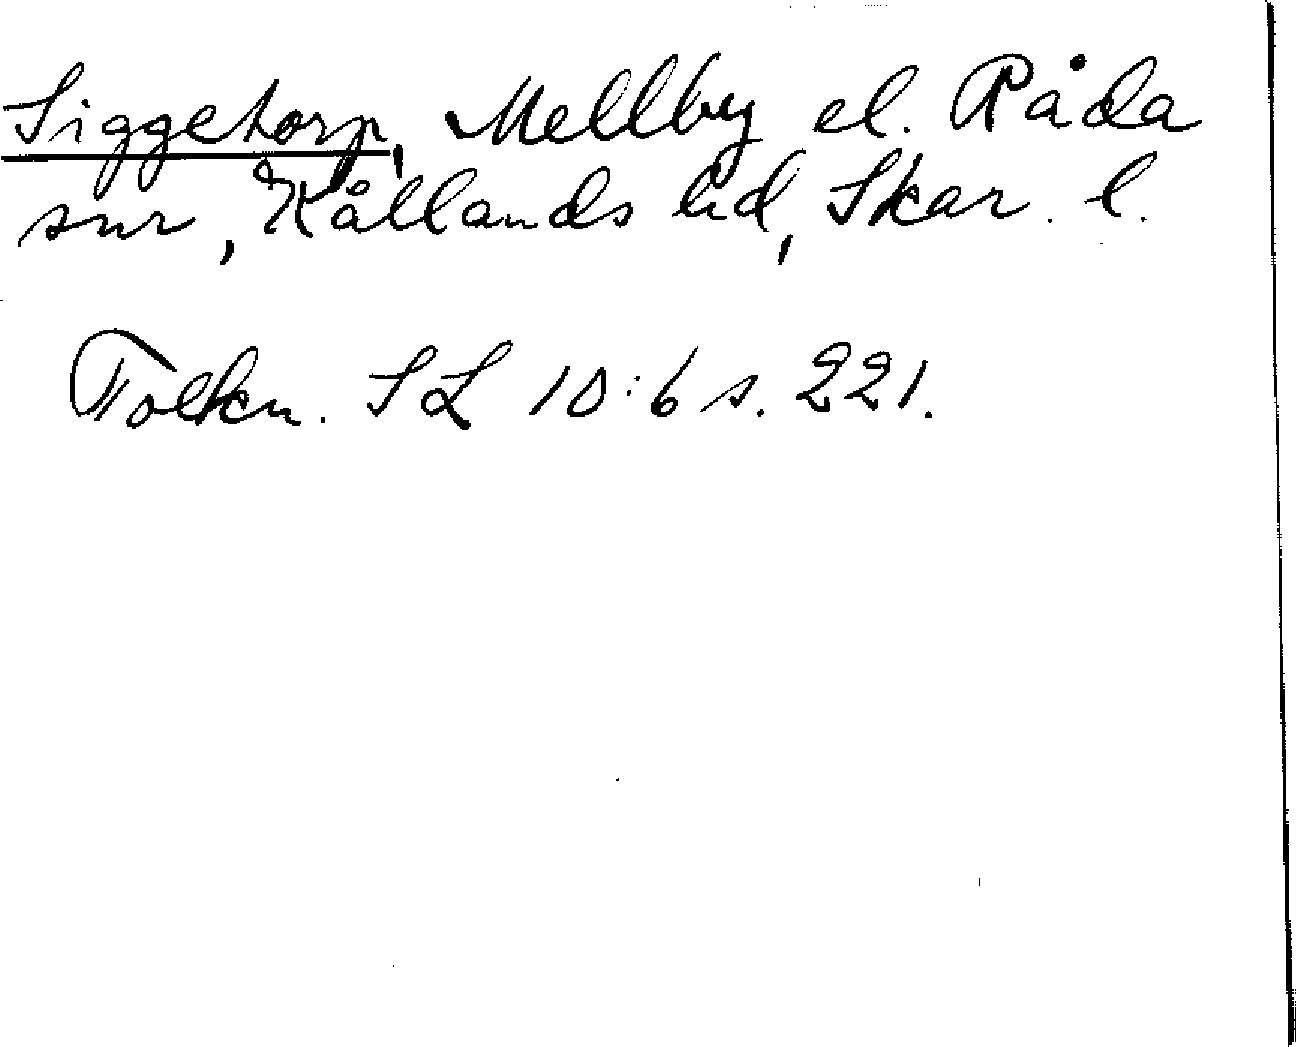 Siggetorp, Mellby el. Råda
snr, Kållands hd, Skar. l.
Folkn. SL 10:6 s. 221.